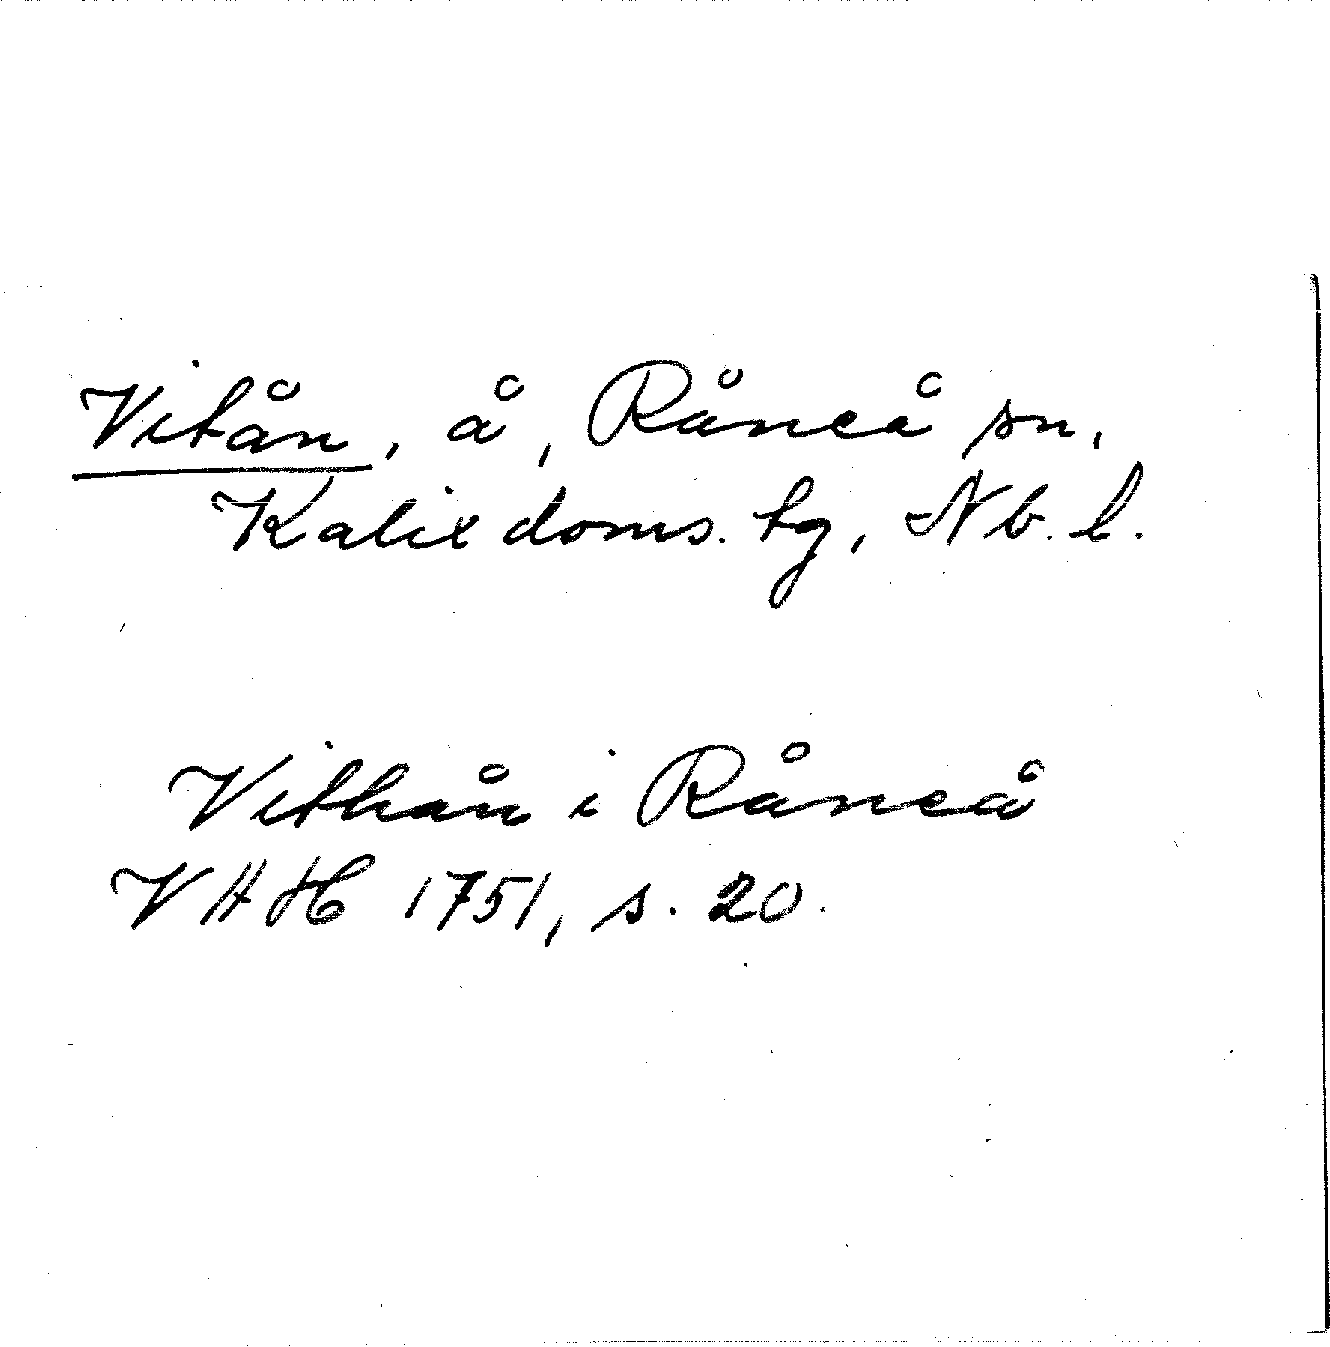 Vitån, å, Råneå sn,
Kalix doms. tg, Nb. l.
Vithån i Råneå
VHH 1751, s. 20.